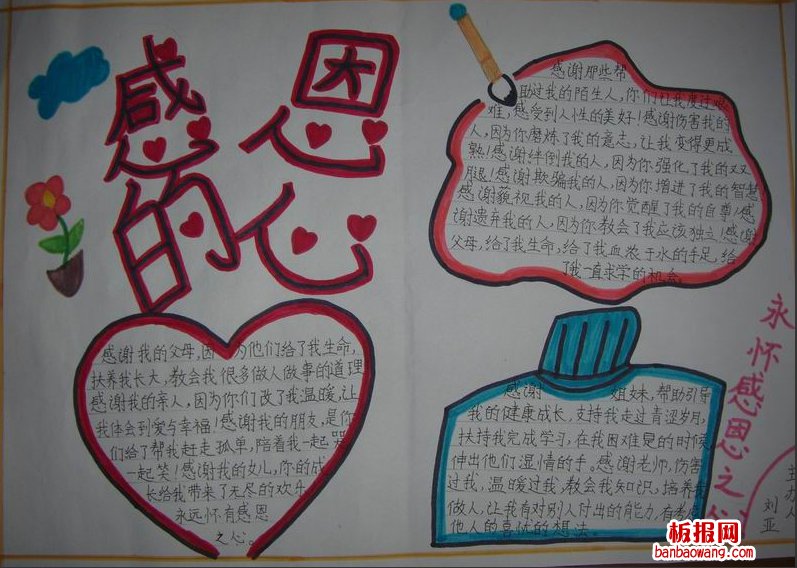 感恩
的心
感谢那些帮
助过我的陌生人,你们让我度过艰
难,感受到人性的美好!感谢伤害我的
人,因为你磨炼了我的意志,让我变得更成
熟!感谢绊倒我的人,因为你强化了我的双
腿!感谢欺骗我的人,因为你增进了我的智慧
感谢藐视我的人,因为你觉醒了我的自尊!感
谢遗弃我的人,因为你教会了我应该独立!感谢
父母,给了我生命,给了我血浓于水的手足,给
了我一直求学的机会。
感谢我的父母,因为他们给了我生命,
扶养我长大,教会我很多做人做事的道理
感谢我的亲人,因为你们改了我温暖,让
我体会到爱与幸福!感谢我的朋友,是你
们给了帮我赶走孤单,陪着我一起哭
一起笑!感谢我的女儿,你的成
长给我带来了无尽的欢乐
永远怀有感恩
之心。
感谢 姐妹,帮助引导
我的健康成长,支持我走过青涩岁月,
扶持我完成学习,在我困难是的时候
伸出他们湿情的手。感谢老师,伤害
过我,温暖过我,教会我知识,培养我
做人,让我有对别人付出的能力,有考虑
他人的喜忧的想法。
永怀感恩之心
主办人
刘亚
板报网
banbaowang.com